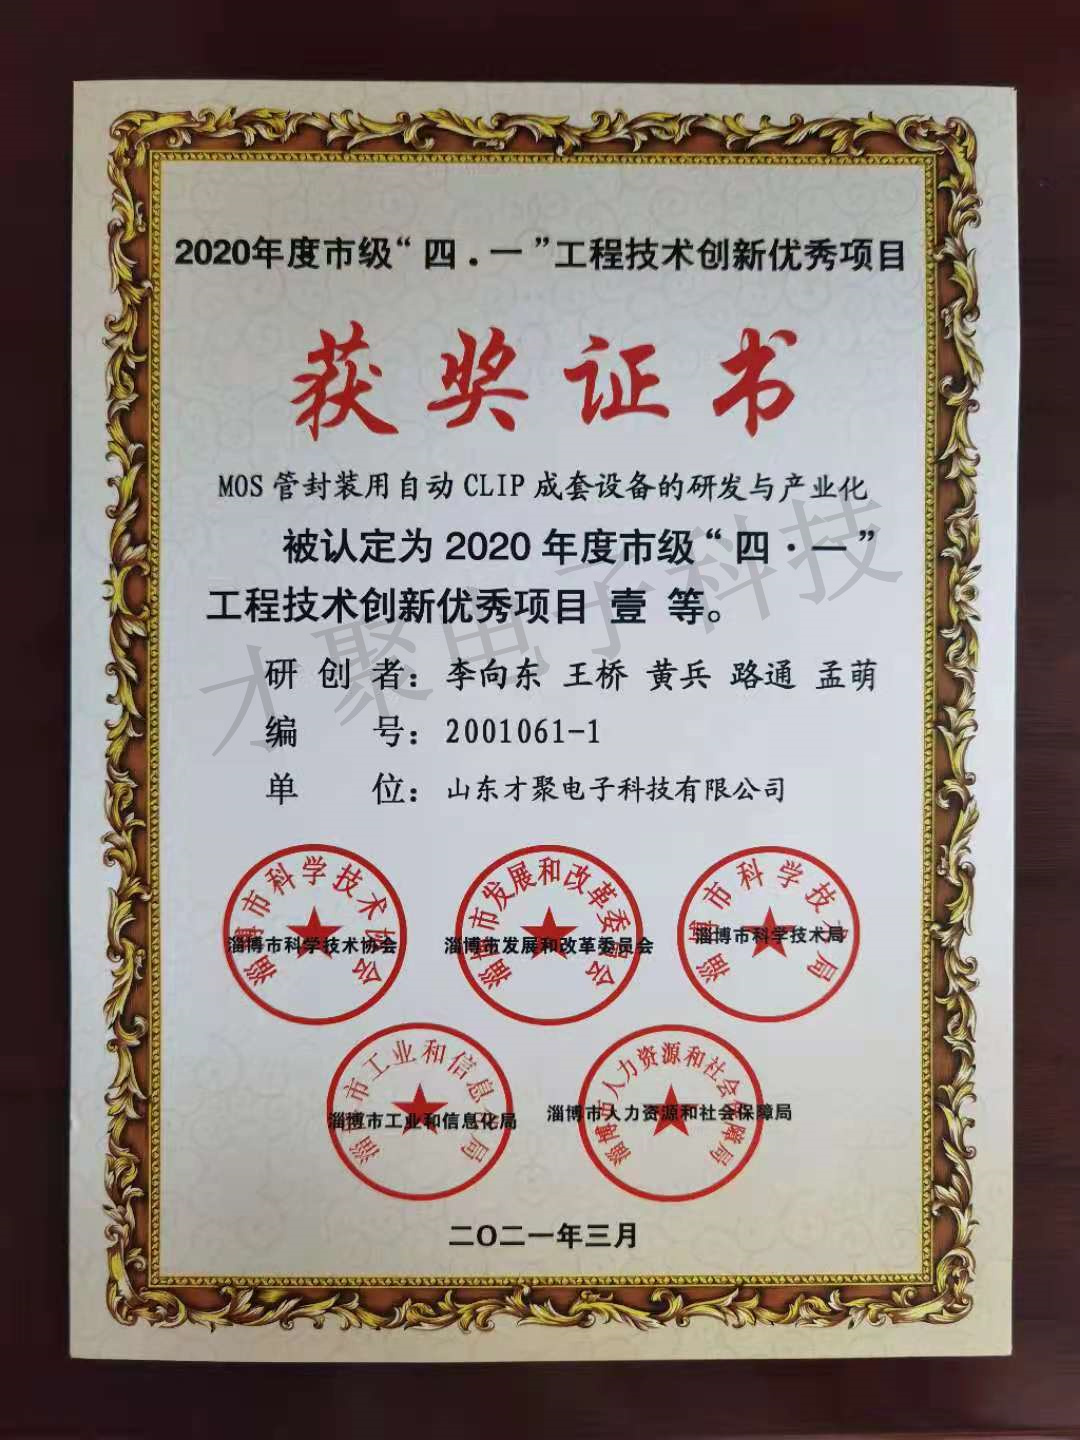 2020年度市级“四．一”工程技术创新优秀项目
获奖证书
MOS管封装用自动CLIP成套设备的研发与产业化
被认定为2020年度市级“四·一”
工程技术创新优秀项目 壹 等。
研创者：李向东 王桥 黄兵 路通 孟萌
编号：2001061-1
单位：山东才聚电子科技有限公司
才聚电子科技
淄博市科学技术协会
淄博市科学技术协会
淄博市发展和改革委员会
淄博市发展和改革委员会
淄博市科学技术局
淄博市科学技术局
淄博市工业和信息化局
淄博市工业和信息化局
淄博市人力资源和社会保障局
淄博市人力资源和社会保障局
二〇二一年三月